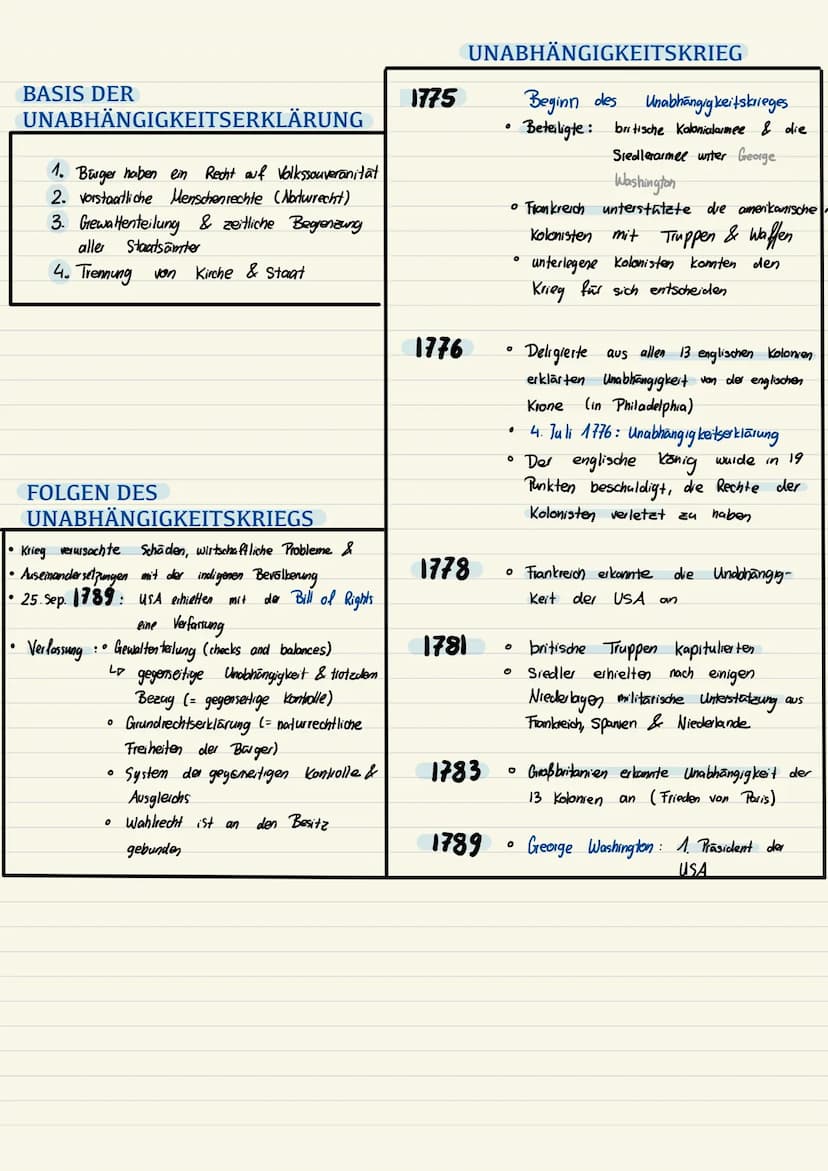 BASIS DER
UNABHÄNGIGKEITSERKLÄRUNG
1. Bürger haben ein Recht auf Volkssouveränität
2. vorstaatliche Menschenrechte (Naturrecht)
3. Gewaltenteilung & zeitliche Begrenzung
aller Staatsämter
4. Trennung von Kirche & Staat
FOLGEN DES
UNABHÄNGIGKEITSKRIEGS
• Krieg verursachte Schäden, wirtschaftliche Probleme &
• Auseinandersetzungen mit der indigenen Bevölkerung
• 25. Sep. 1789: USA erhielten mit der Bill of Rights
eine Verfassung
• Verfassung: • Gewaltenteilung (checks and balances)
↳ gegenseitige Unabhängigkeit & trotzdem
Bezug (= gegenseitige Kontrolle)
• Grundrechtserklärung (= naturrechtliche
Freiheiten der Bürger)
• System der gegenseitigen Kontrolle &
Ausgleichs
• Wahlrecht ist an den Besitz
gebunden
UNABHÄNGIGKEITSKRIEG
1775 Beginn des Unabhängigkeitskrieges
• Beteiligte: britische Kolonialarmee & die
Siedlerarmee unter George
Washington
• Frankreich unterstützte die amerikanische
Kolonisten mit Truppen & Waffen
• unterlegene Kolonisten konnten den
Krieg für sich entscheiden
1776 • Delegierte aus allen 13 englischen Kolonien
erklärten Unabhängigkeit von der englischen
Krone (in Philadelphia)
• 4. Juli 1776: Unabhängigkeitserklärung
• Der englische König wurde in 19
Punkten beschuldigt, die Rechte der
Kolonisten verletzt zu haben
1778 • Frankreich erkannte die Unabhängig-
keit der USA an
1781 • britische Truppen kapitulierten
• Siedler erhielten nach einigen
Niederlagen militärische Unterstützung aus
Frankreich, Spanien & Niederlande
1783 • Großbritanien erkannte Unabhängigkeit der
13 Kolonien an (Frieden von Paris)
1789 • George Washington: 1. Präsident der
USA